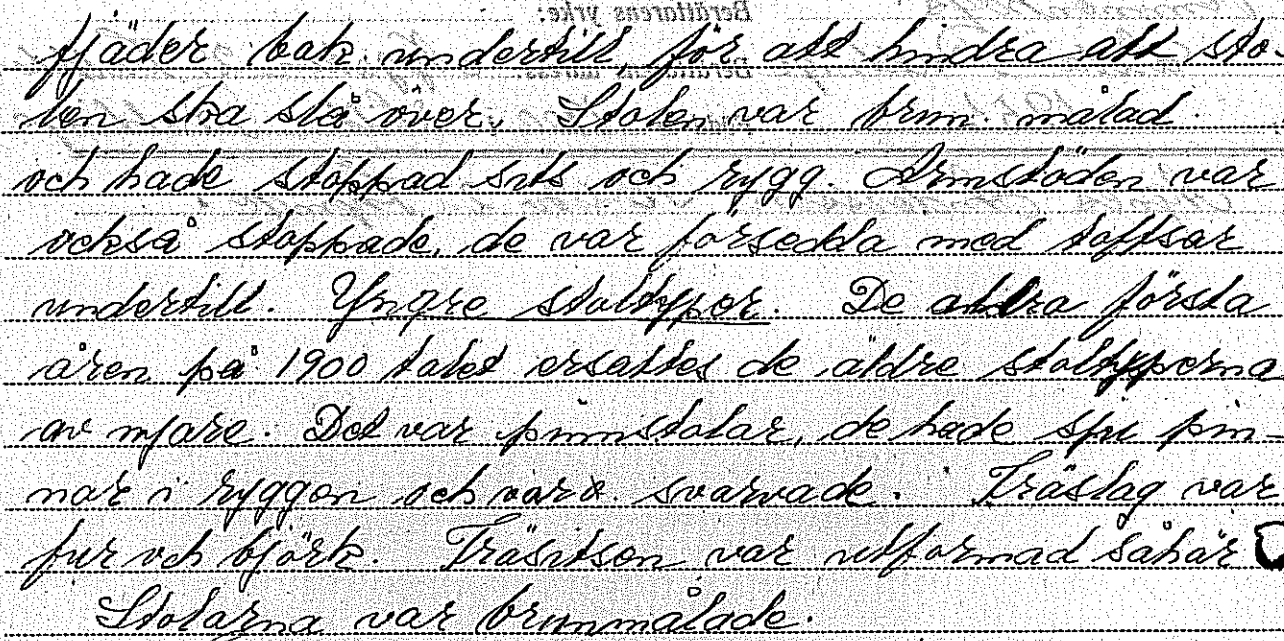 fjäder bak undertill, för att hindra att sto-
len ska slå över. Stolen var brun målad.
och hade stoppad sits och rygg. Armstöden var
också stoppade, de var försedda med toffsar
undertill. Yngre stoltyper. De allra första
åren på 1900 talet ersattes de äldre stoltyperna
av nyare. Det var pinnstolar, de hade sju pin-
nar i ryggen och var svarvade. Träslag var
fur och björk. Träsitsen var utformad såhär
Stolarna var brunmålade.